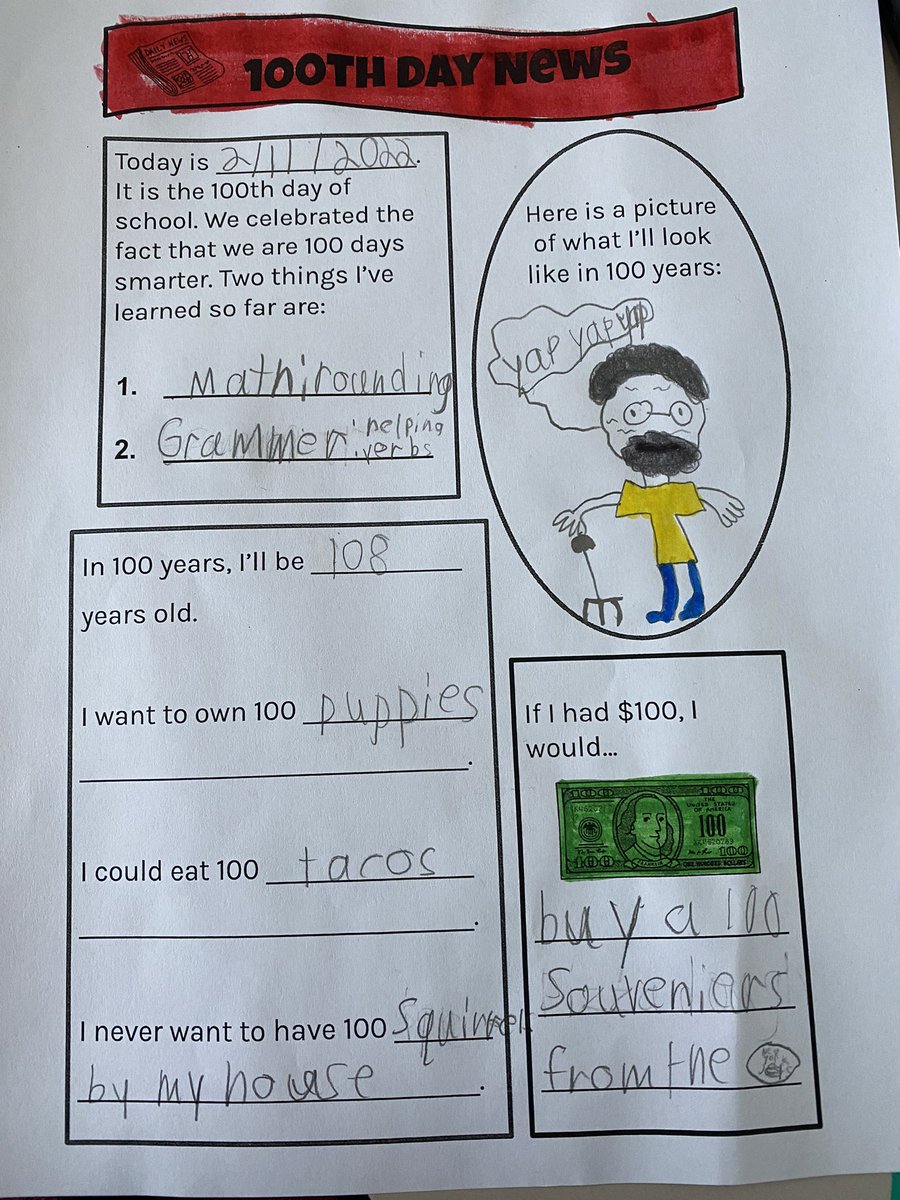 DAILY NEWS
100TH DAY NEWS
Today is 2/11/2022.
It is the 100th day of
school. We celebrated the
fact that we are 100 days
smarter. Two things I've
learned so far are:
1. Math: rounding
2. Grammer: helping
verbs
Here is a picture
of what I'll look
like in 100 years:
yap yap yap
In 100 years, I'll be 108
years old.
I want to own 100 puppies
.
I could eat 100 tacos
.
I never want to have 100 Squirrel
by my house.
If I had $100, I
would...
100
THE
UNITED STATES
OF AMERICA
100
100
FRANKLIN
100
ONE HUNDRED DOLLARS
buy a 100
Souveniers
from the